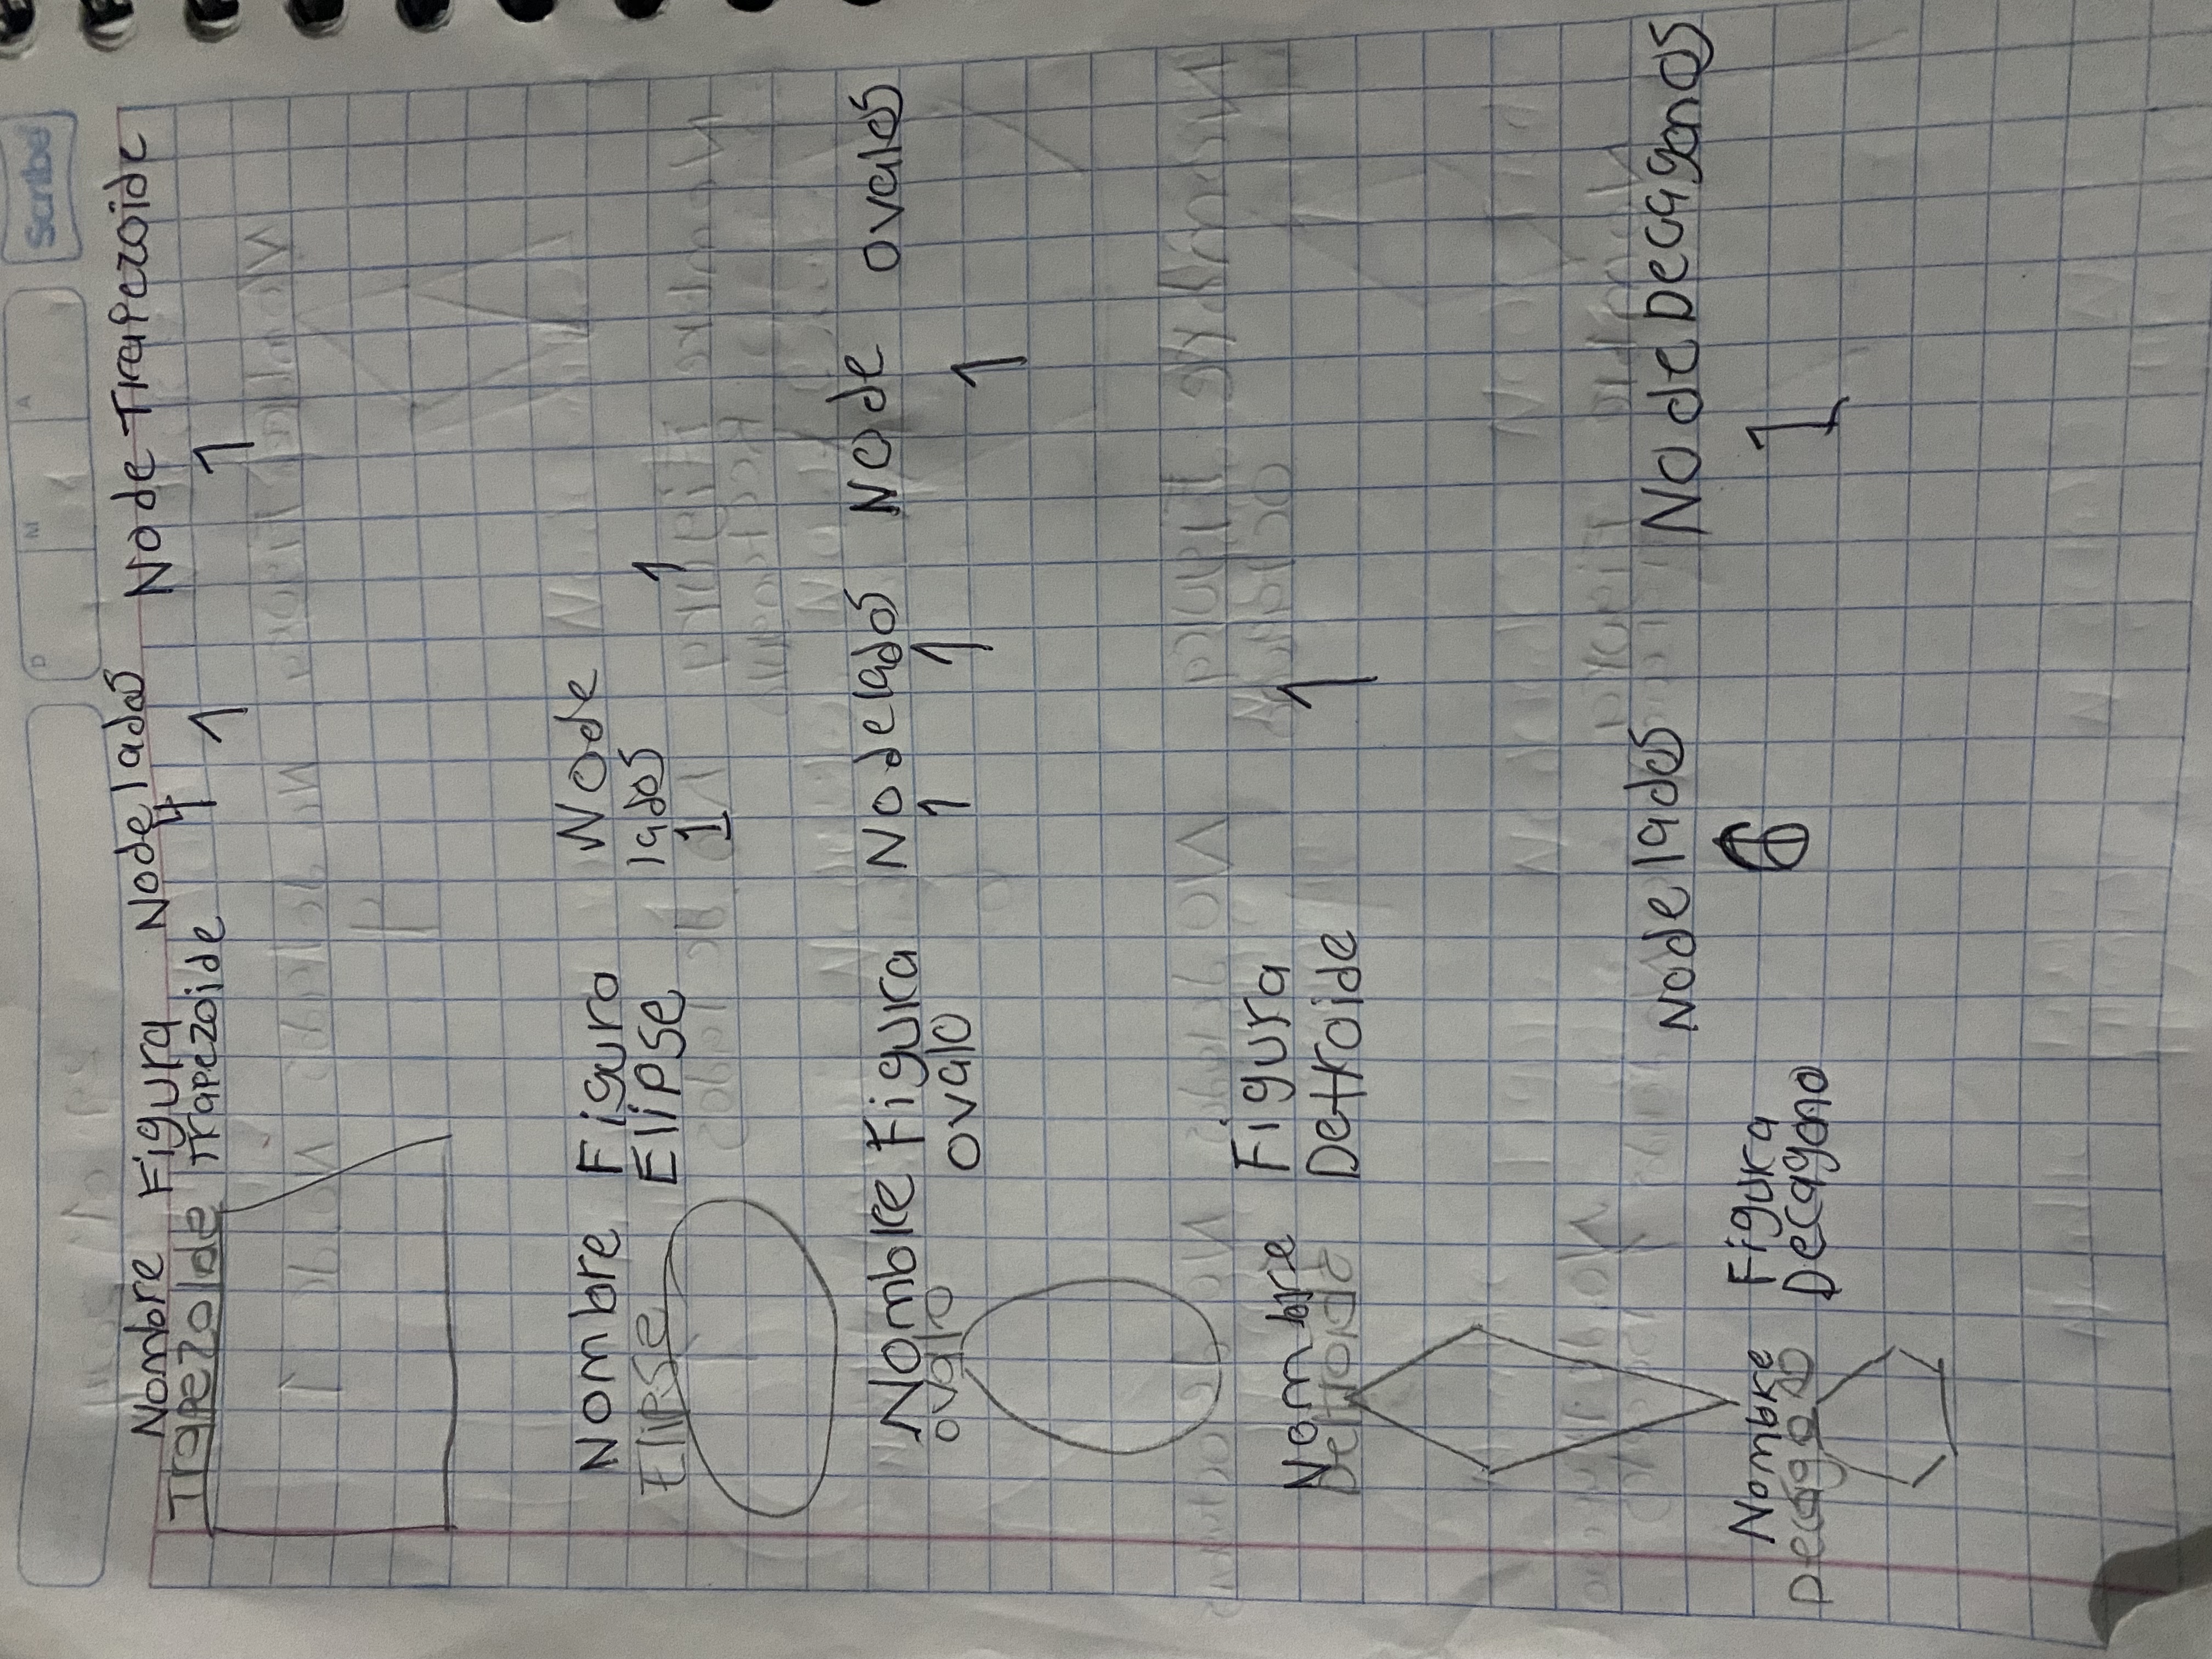 Scribe
D M A
Nombre Figura No de lados No de Trapezoide
Trapezoide Trapezoide 4 1 1
Nombre Figura No de
Elipse Elipse lados 1
1
Nombre Figura No de lados No de ovalos
ovalo ovalo 1 1 1
Nombre Figura
Deltoide Deltroide 1
No de lados No de Decagonos
Nombre Figura 6 1
Decagono Decagono